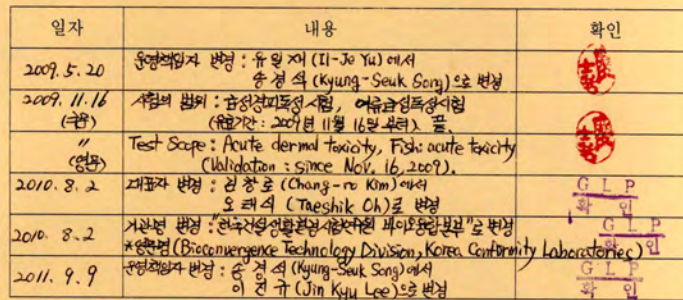 일자 내용 확인
2009.5.20 운영책임자 변경 : 유일재 (Il-Je Yu)에서
송경석 (Kyung-Seuk Song)으로 변경
2009.11.16 시험의 범위 : 급성경피독성 시험, 어류급성독성시험
(국문) (유효기간 : 2009년 11월 16일 부터). 끝.
〃 Test Scope : Acute dermal toxicity, Fish: acute toxicity
(영문) (Validation : since Nov. 16, 2009).
2010.8.2 대표자 변경 : 김창로 (Chang-ro Kim)에서
오태식 (Taeshik Oh)로 변경
G L P
확 인
2010.8.2 기관명 변경 : "한국건설생활환경시험연구원 바이오융합본부"로 변경
*영문명 (Bioconvergence Technology Division, Korea Conformity Laboratories)
G L P
확 인
2011.9.9 운영책임자 변경 : 송경석 (Kyung-Seuk Song)에서
이진규 (Jin Kyu Lee)으로 변경
G L P
확 인